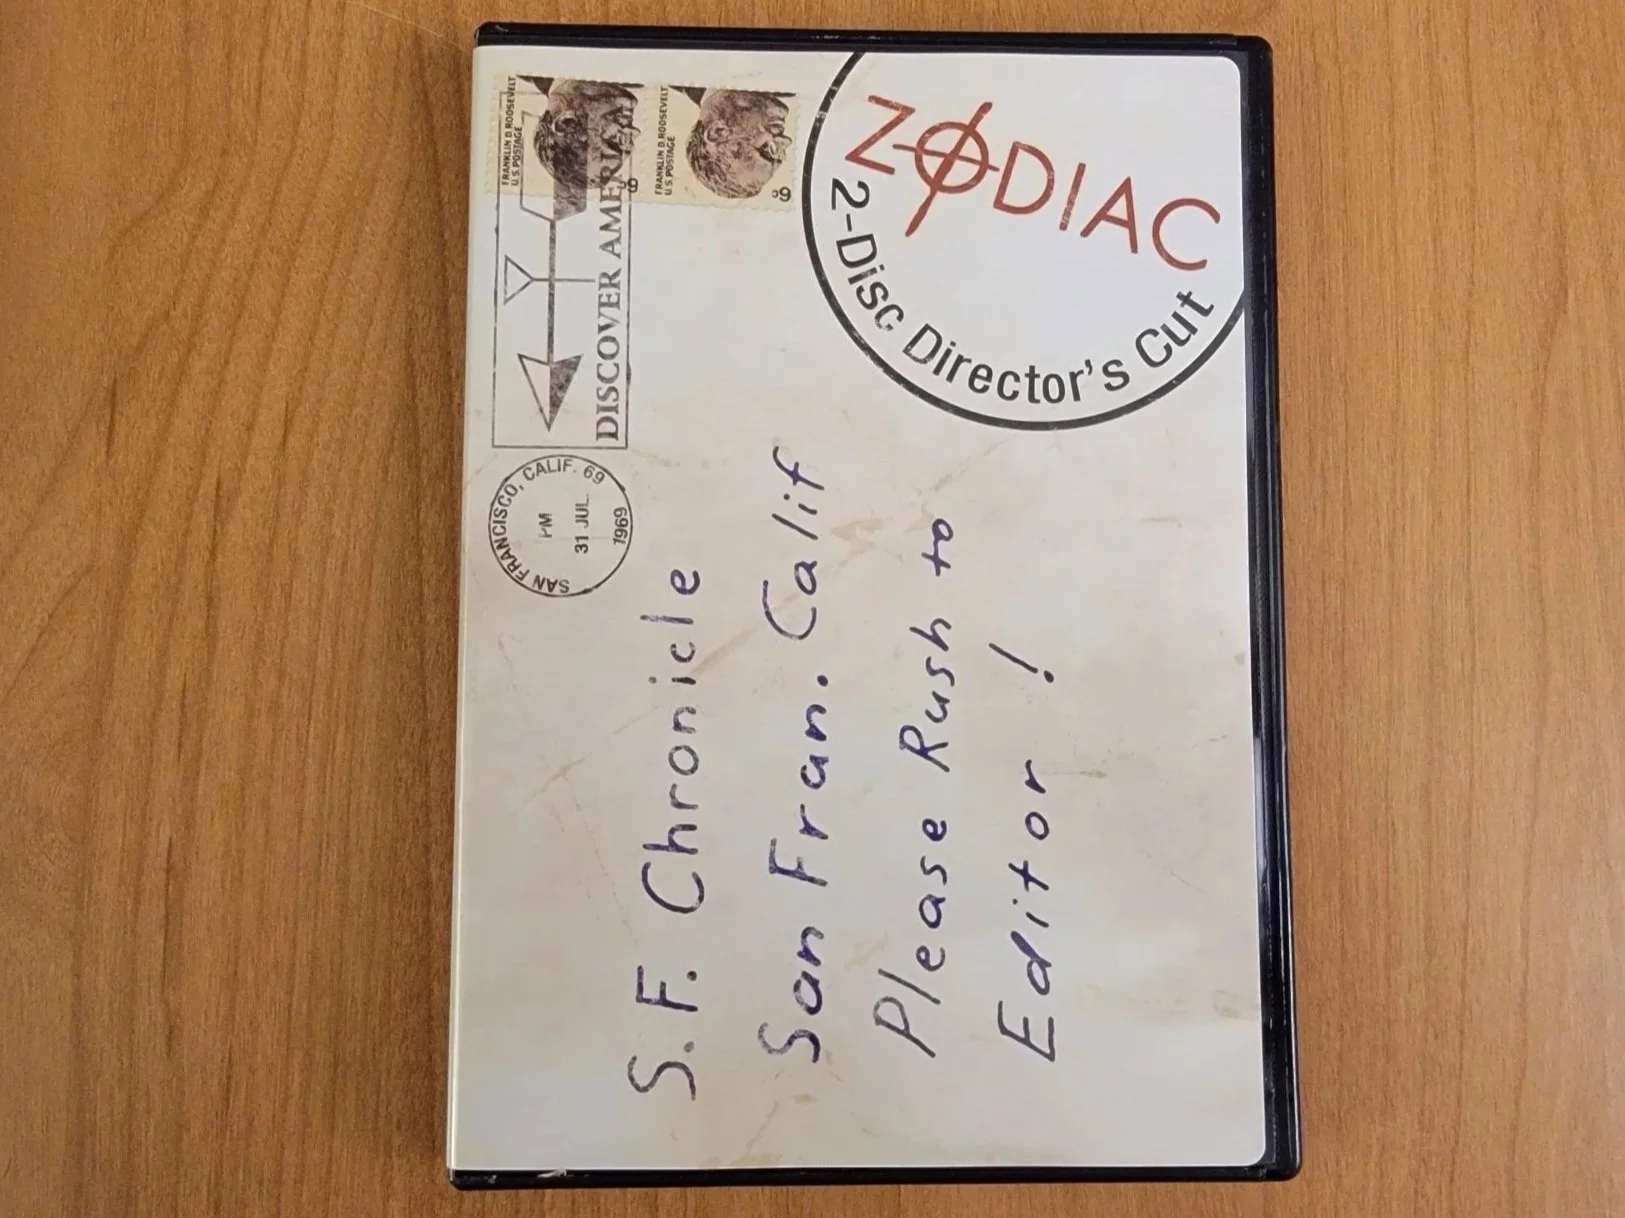 ZODIAC
2-Disc Director's Cut
FRANKLIN D. ROOSEVELT
U.S. POSTAGE
6c
FRANKLIN D. ROOSEVELT
U.S. POSTAGE
6c
DISCOVER AMERICA
SAN FRANCISCO, CALIF. 69
PM
31 JUL.
1969
S.F. Chronicle
San Fran. Calif
Please Rush to
Editor !